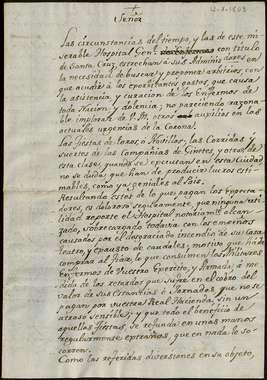 Señor
Las circunstancias del tiempo, y las de este mi-
serable Hospital Genl. con titulo
de Santa Cruz, estrechan à sus Administradores en
la necesidad de buscar y proponer arbitrios, con
que acudir à los exorbitantes gastos, que causa
la asistencia, y curacion de los Enfermos de
toda Nacion, y dolencia; no pareciendo razona-
ble implorar de V.M. otros auxilios en las
actuales urgencias de la Corona.
Las fiestas de Toros, ò Novillos; las Corridas y
suertes de las Compañias de Ginetes, y otras de
esta clase, quando se executan en esta Ciudad
no se duda, que han de producir lucros esti-
mables, como ya geniales al Pais.
Resultando estos de lo que pagan los Especta-
dores, es doloroso seguramente, que ninguna uti-
lidad reporte el Hospital notoriamte. alcan-
zado, sobrecargado todavia con los
causados por el desgraciado Incendio de su Casa
Teatro, y exausto de caudales; motivo
comprar al fiado, lo que consumen los Militares
Enfermos de Vuestro Exercito, y Armada, à me-
dida de los retardos que sufre en el cobro del
valor de sus Estancias ò Jornadas, que no se
pagan por vuestra Real Hacienda, sin un
atraso sensible; y que todo el beneficio de
aquellas fiestas, se refunda en unas manos
regularmente estrañas, que en nada lo so-
corren.
Como las referidas diversiones en su objeto,